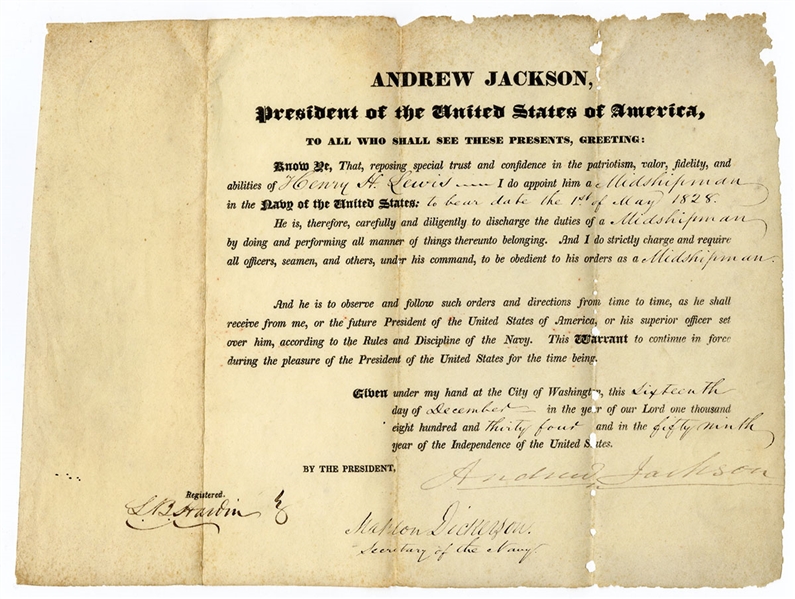 ANDREW JACKSON,
President of the United States of America,
TO ALL WHO SHALL SEE THESE PRESENTS, GREETING:
Know Ye, That, reposing special trust and confidence in the patriotism, valor, fidelity, and
abilities of Henry H. Lewis I do appoint him a Midshipman
in the Navy of the United States: to bear date the 1st of May 1828.
He is, therefore, carefully and diligently to discharge the duties of a Midshipman
by doing and performing all manner of things thereunto belonging. And I do strictly charge and require
all officers, seamen, and others, under his command, to be obedient to his orders as a Midshipman.
And he is to observe and follow such orders and directions from time to time, as he shall
receive from me, or the future President of the United States of America, or his superior officer set
over him, according to the Rules and Discipline of the Navy. This Warrant to continue in force
during the pleasure of the President of the United States for the time being.
Given under my hand at the City of Washington, this Sixteenth
day of December in the year of our Lord one thousand
eight hundred and thirty four and in the fifty ninth
year of the Independence of the United States.
BY THE PRESIDENT, Andrew Jackson
Registered.
S. B. Hardin
Mahlon Dickerson.
Secretary of the Navy.